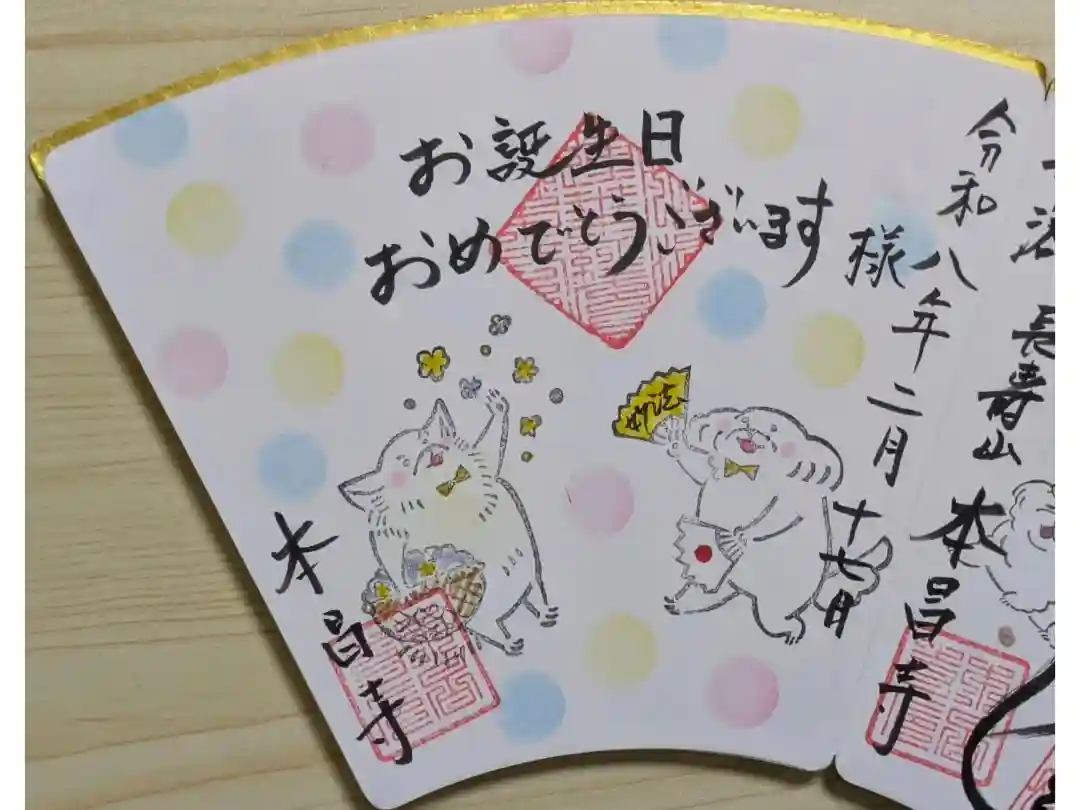 お誕生日
おめでとうございます
様
令和八年二月
十七日
妙法
本昌寺
長壽山
本昌寺